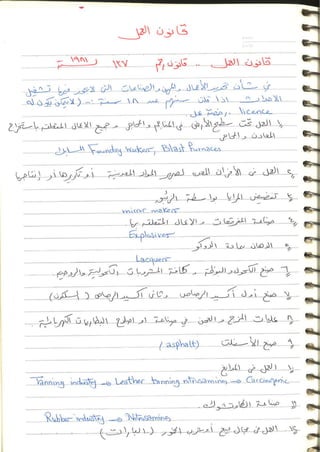 قانون العمل
قانون العمل .. قانون رقم ١٣٧ لسنة ١٩٨١
في شأن تحديد الأعمال والمهن والصناعات التى لا يجوز فيها تشغيل
الأحداث اذا كان سنهم عن ١٨ سنة .. (لا يكون له
رخصة عمل licence
١ـ العمل تحت سطح الأرض في المناجم والمحاجر وجميع الأعمال المتعلقة باستخراج
المعادن والمحاجر
Foundry worker, Blast Furnaces
٢ـ العمل في الأفران المعدة لصهر المواد المعدنية أو تكريرها أو إنتاجها
٣ـ تفضيض المرايا بواسطة الزئبق
mirror makers
٤ـ صناعة المفرقعات والأعمال المتعلقة بها
Explosives
٥ـ الدهان بمادة الدوكو
Lacquer
٦ـ صنع الكحول والبوظة وكافة المشروبات الكحولية
٧ـ صنع أول أكسيد الرصاص وثاني أكسيد الرصاص
٨ـ عمليات المزج والعجن في صناعة او اصلاح البطاريات الكهربائية
٩ـ صنع الأسفلت (asphalt)
١٠ـ العمل في المدابغ
Tanning industry → Leather tanning nitrosamines → Carcinogenic
١١ـ صناعة الكاوتشوك
Rubber industry → Nitrosamines
١٢ـ العمل في مجال بيع أو شرب الخمور (البارات)